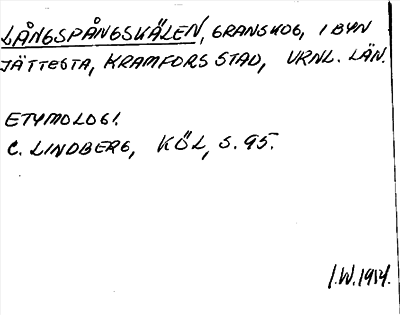 LÅNGSPÅNGSKÄLEN, GRANSKOG, I BYN
JÄTTESTA, KRAMFORS STAD, VRNL. LÄN.
ETYMOLOGI.
C. LINDBERG, KÖL, S. 95.
I.W. 1954.